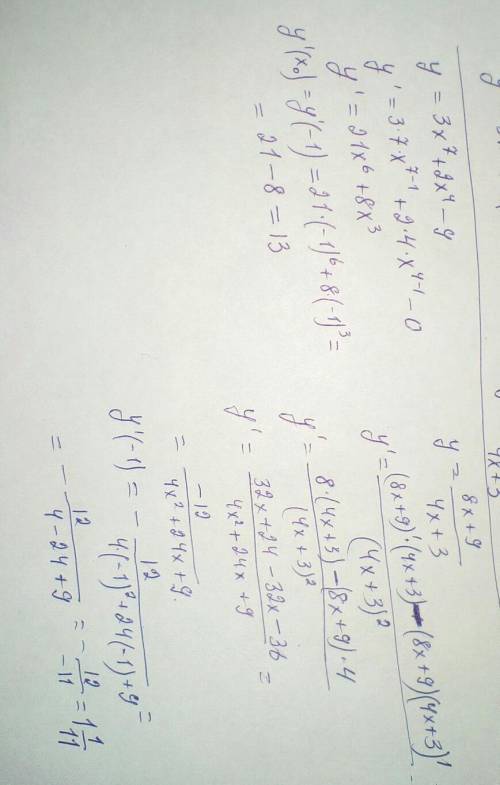 4x+3
y = 3x⁷ + 2x⁴ - 9
y' = 3·7·x⁷⁻¹ + 2·4·x⁴⁻¹ - 0
y' = 21x⁶ + 8x³
y'(x₀) = y'(-1) = 21·(-1)⁶ + 8·(-1)³ =
= 21 - 8 = 13
y = (8x+9)/(4x+3)
y' = ((8x+9)'(4x+3) - (8x+9)(4x+3)')/(4x+3)²
y' = (8·(4x+3) - (8x+9)·4)/(4x+3)²
y' = (32x+24-32x-36)/(4x²+24x+9) =
= (-12)/(4x²+24x+9).
y'(-1) = - 12/(4·(-1)²+24(-1)+9) =
= - 12/(4-24+9) = - 12/(-11) = 1 1/11